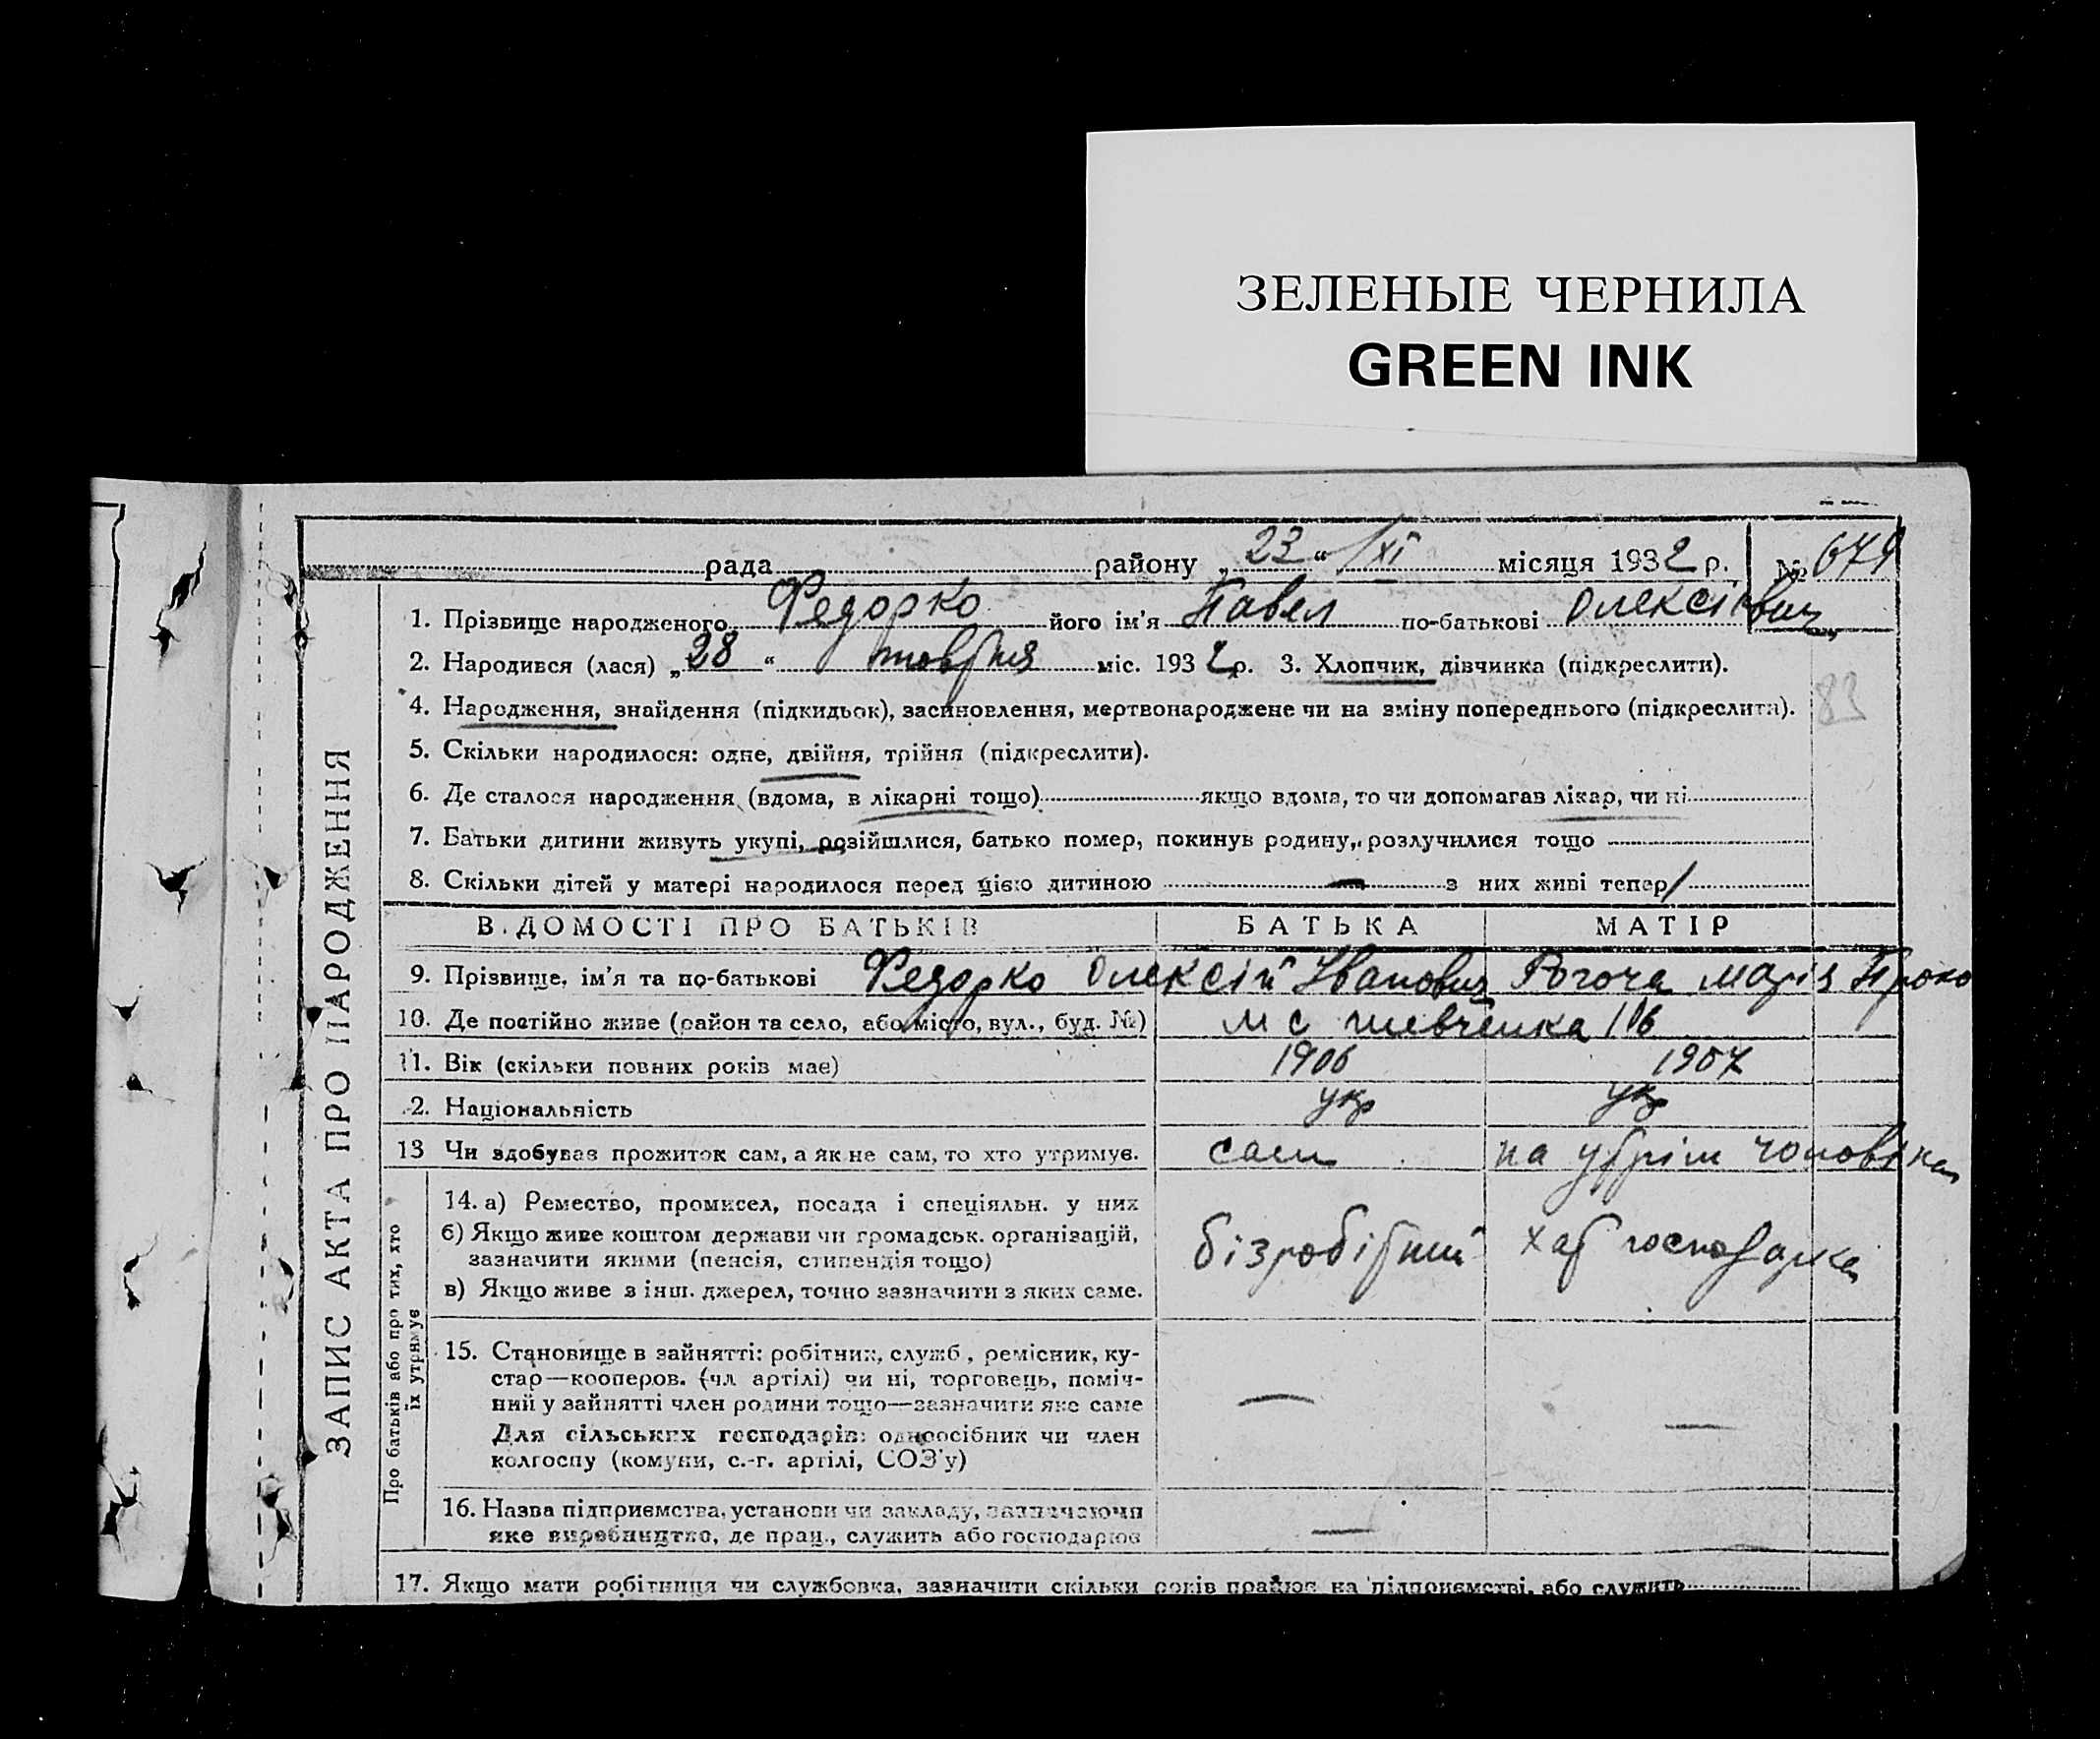 ЗЕЛЕНЫЕ ЧЕРНИЛА
GREEN INK
рада района „23“ /XI місяця 1932 р. № 679
1. Прізвище народженого Федорко його ім'я Павел по-батькові Олексієвич
2. Народився (лася) „28“ жовтня міс. 1932 р. 3. Хлопчик, дівчинка (підкреслити).
4. Народження, знайдення (підкидьок), засиновлення, мертвонароджене чи на зміну попереднього (підкреслити).
83
5. Скільки народилося: одне, двійня, трійня (підкреслити).
6. Де сталося народження (вдома, в лікарні тощо) якщо вдома, то чи допомагав лікар, чи ні
7. Батьки дитини живуть укупі, розійшлися, батько помер, покинув родину, розлучилися тощо
8. Скільки дітей у матері народилося перед цією дитиною — з них живі тепер /
ЗАПИС АКТА ПРО НАРОДЖЕННЯ
ВІДОМОСТІ ПРО БАТЬКІВ БАТЬКА МАТІР
9. Прізвище, ім'я та по-батькові Федорко Олексій Іванович Рогоча Марія Проко
10. Де постійно живе (район та село, або місто, вул., буд. №) м с Шевченка 116
11. Вік (скільки повних років має) 1906 1907
12. Національність укр укр
13 Чи здобував прожиток сам, а як не сам, то хто утримує. сам на утрім чоловіка
Про батьків або про тих, хто їх утримує
14. а) Ремество, промисел, посада і спеціяльн. у них
б) Якщо живе коштом держави чи громадськ. організацій,
зазначити якими (пенсія, стипендія тощо) бізробітний хат господарка
в) Якщо живе з інш. джерел, точно зазначити з яких саме.
15. Становище в зайнятті: робітник, служб., ремісник, ку-
стар—кооперов. (чл. артілі) чи ні, торговець, поміч-
ний у зайнятті член родини тощо—зазначити яке саме — —
Для сільських господарів: одноосібник чи член
колгоспу (комуни, с.-г. артілі, СОЗ'у)
16. Назва підприємства, установи чи закладу, зазначаючи
яке виробництво, де прац., служить або господарює —
17. Якщо мати робітниця чи службовка, зазначити скільки років працює на підприємстві, або служить